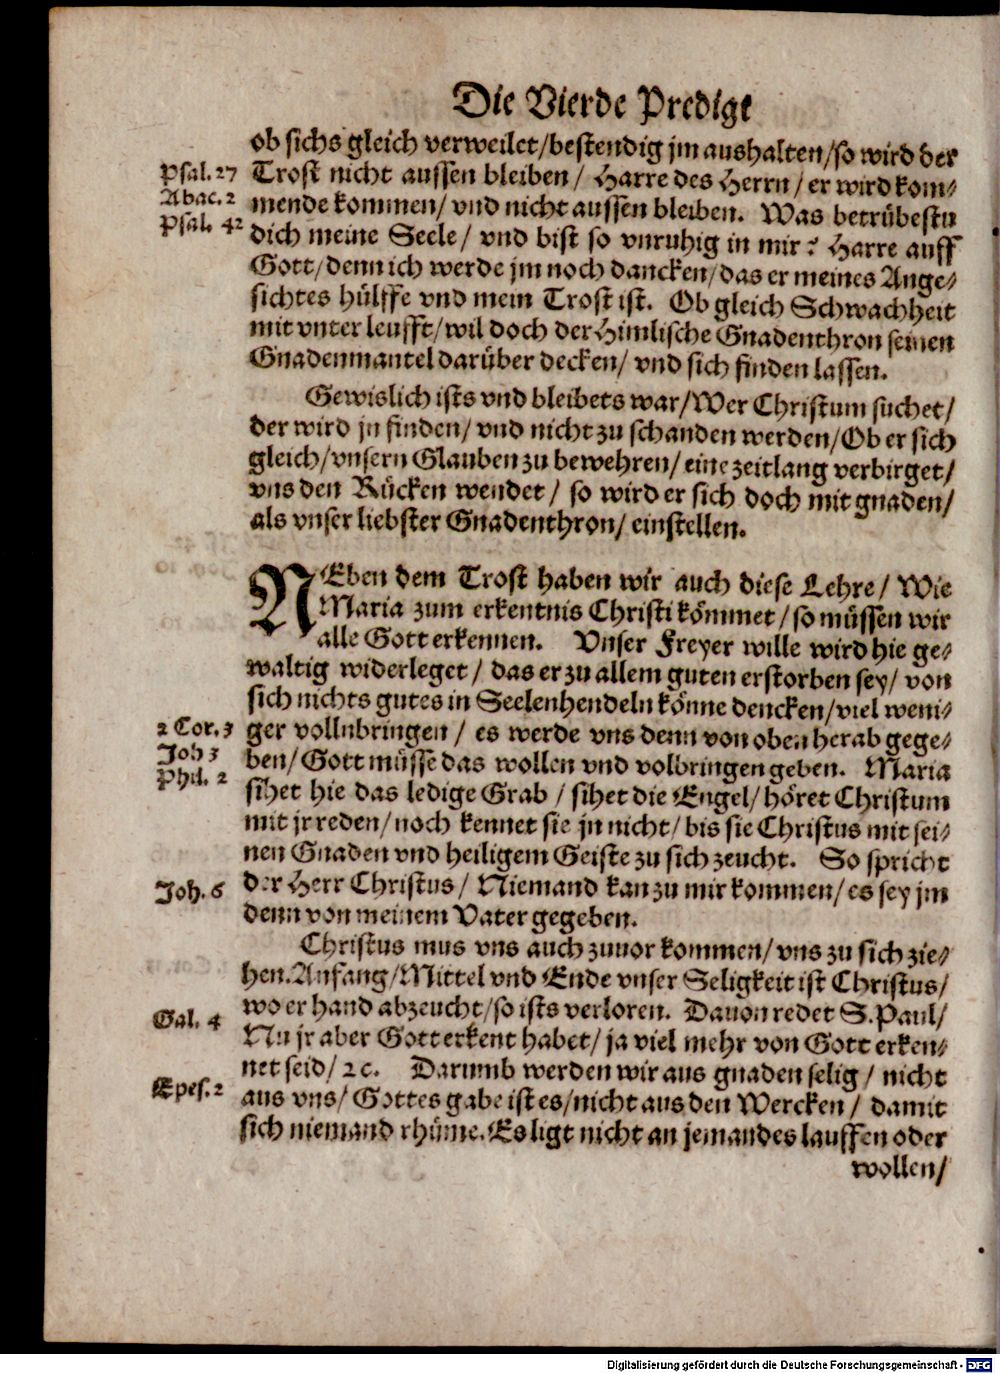 Die Vierde Predigt
ob sichs gleich verweilet/bestendig jm aushalten/so wird der
Psal. 27 Trost nicht aussen bleiben/ Harre des Herrn/ er wird kom-
Abac. 2 mende kommen/ vnd nicht aussen bleiben. Was betrübestu
Psal. 42 dich meine Seele/ vnd bist so vnruhig in mir? Harre auff
Gott/denn ich werde jm noch dancken/das er meines Ange-
sichtes hülffe vnd mein Trost ist. Ob gleich Schwachheit
mit vnter leufft/wil doch der Himlische Gnadenthron seinen
Gnadenmantel darüber decken/ vnd sich finden lassen.
Gewislich ists vnd bleibets war/Wer Christum suchet/
der wird jn finden/ vnd nicht zu schanden werden/Ob er sich
gleich/vnsern Glauben zu bewehren/eine zeitlang verbirget/
vns den Rücken wendet/ so wird er sich doch mit gnaden/
als vnser liebster Gnadenthron/ einstellen.
NEben dem Trost haben wir auch diese Lehre/ Wie
Maria zum erkentnis Christi kömmet/so müssen wir
alle Gott erkennen. Vnser Freyer wille wird hie ge-
waltig widerleget/ das er zu allem guten erstorben sey/ von
sich nichts gutes in Seelenhendeln könne dencken/viel weni-
2 Cor. 3 ger vollnbringen/ es werde vns denn von oben herab gege-
Joh 3 ben/Gott müsse das wollen vnd volbringen geben. Maria
Phil. 2 sihet hie das ledige Grab/ sihet die Engel/höret Christum
mit jr reden/noch kennet sie jn nicht/bis sie Christus mit sei-
nen Gnaden vnd heiligem Geiste zu sich zeucht. So spricht
Joh. 6 der Herr Christus/ Niemand kan zu mir kommen/es sey jm
denn von meinem Vater gegeben.
Christus mus vns auch zuuor kommen/vns zu sich zie-
hen.Anfang/Mittel vnd Ende vnser Seligkeit ist Christus/
wo er hand abzeucht/so ists verloren. Dauon redet S.Paul/
Gal. 4 Nu jr aber Gott erkent habet/ja viel mehr von Gott erken-
net seid/ 2c. Darumb werden wir aus gnaden selig/ nicht
Epes. 2 aus vns/ Gottes gabe ist es/nicht aus den Wercken/ damit
sich niemand rhüme. Es ligt nicht an jemandes lauffen oder
wollen/
Digitalisierung gefördert durch die Deutsche Forschungsgemeinschaft - DFG